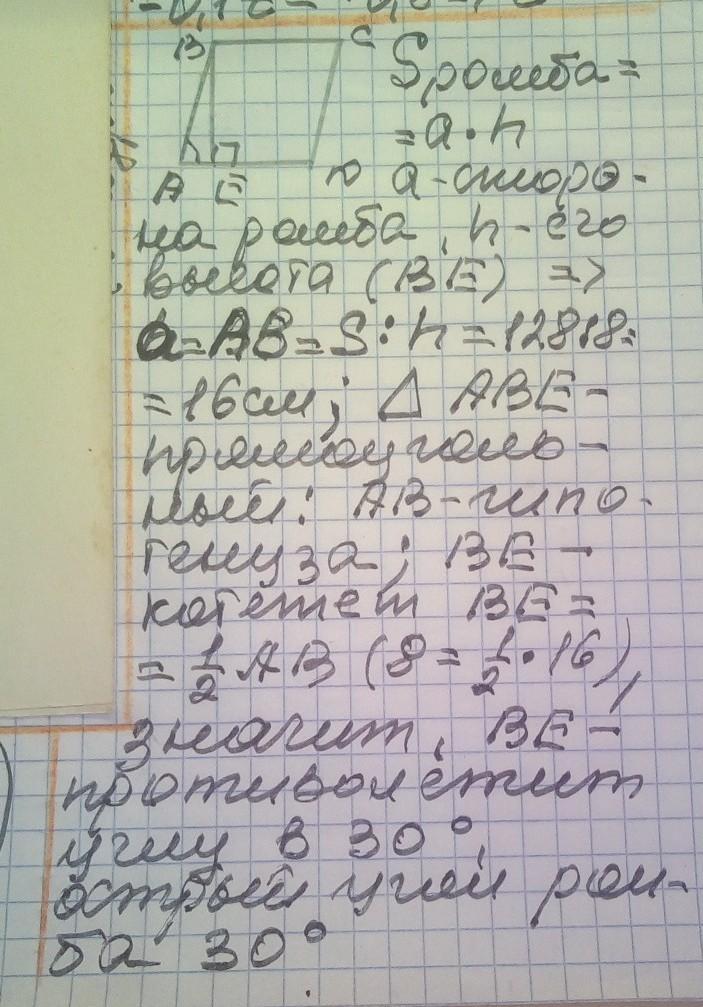 B C
S ромба =
= a · h
A E D a - сторо-
на ромба, h - его
высота (BE) =>
a = AB = S : h = 128 : 8 =
= 16 см; △ ABE -
прямоуголь-
ный: AB - гипо-
тенуза; BE -
катет BE =
= 1/2 AB (8 = 1/2 · 16),
значит, BE -
противолежит
углу в 30°,
острый угол ром-
ба 30°